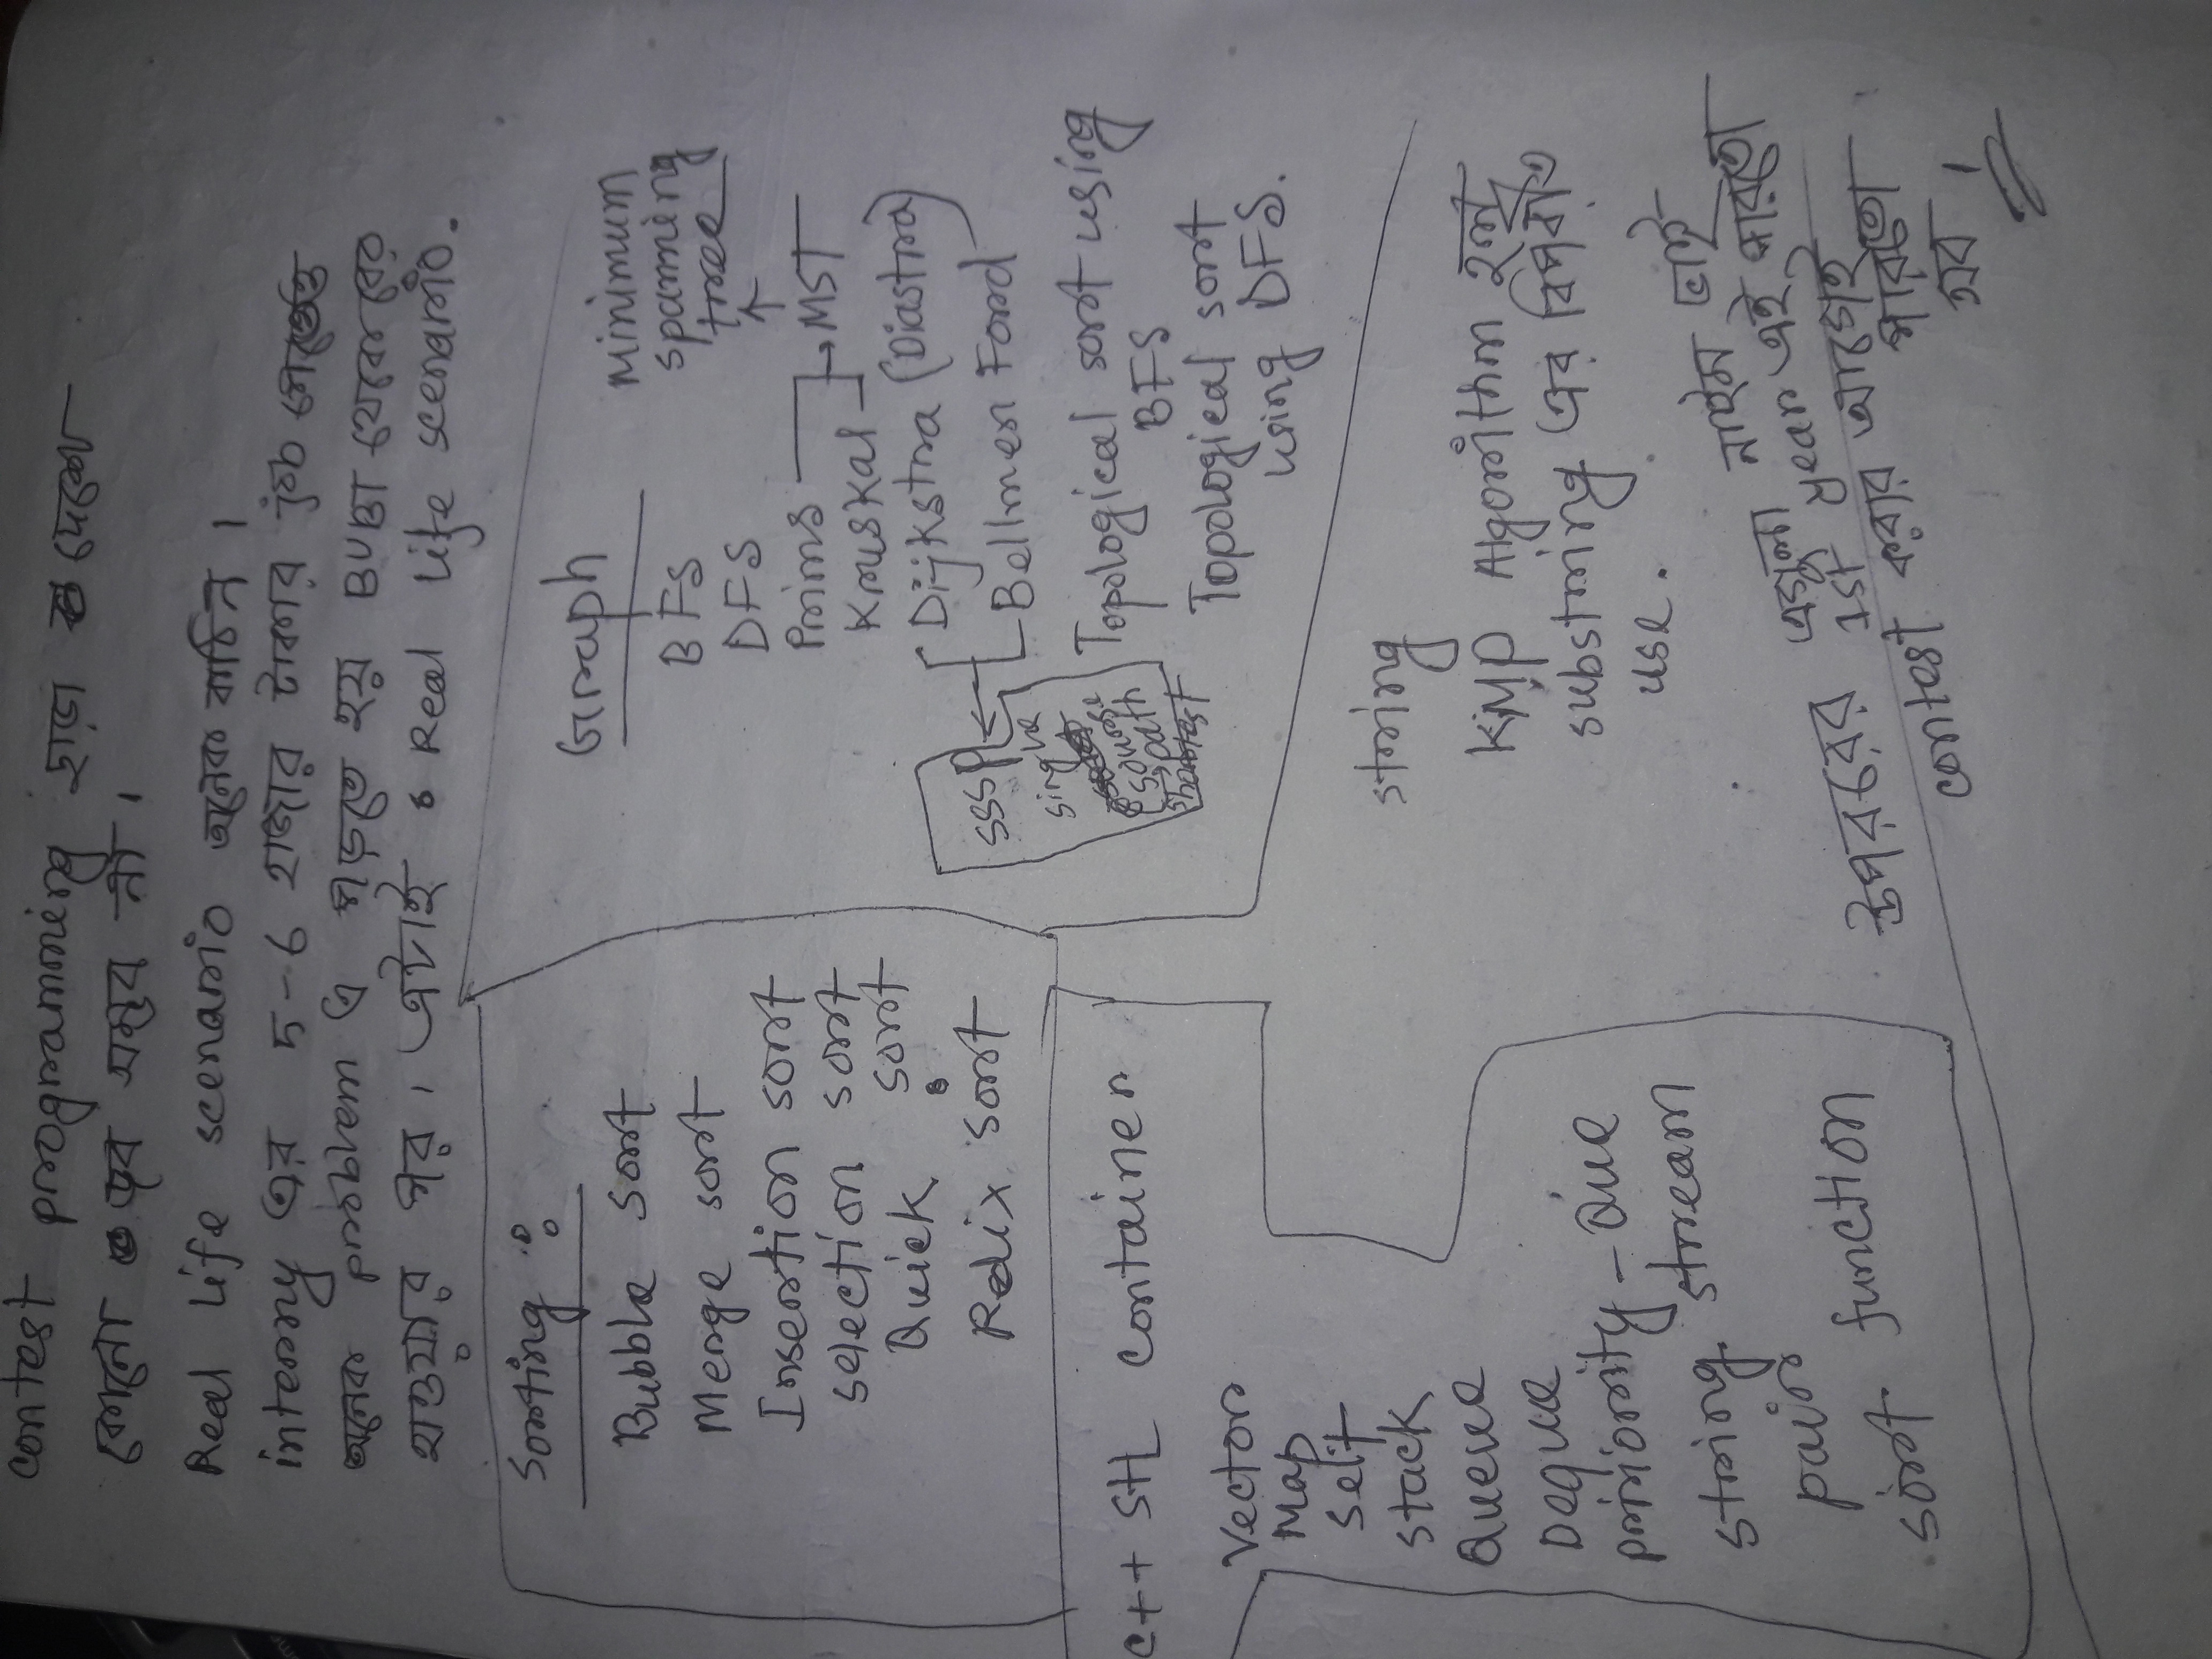 contest programming ছাড়া দেশে
কোনো জব সম্ভব না।
Real Life scenario অনেক কঠিন।
interny এর 5-6 হাজার টাকার job পেতেও
অনেক problem এ পড়তে হয় BUBT থেকে বের
হওয়ার পর। এটাই Real Life scenario.
Sorting :
Bubble sort
Merge sort
Insertion sort
selection sort
Quick sort
Redix sort
Graph
BFS
DFS
Prims
Kruskal
→ MST
↑
Minimum
spanning
tree
Dijkstra (Diastra)
Bellmen Ford
SSSP ←
single
sourse
→ path
shortest
Topological sort using
BFS
Topological sort
using DFS.
C++ STL container
Vector
Map
Set
stack
Queue
Deque
priority-Que
string stream
pair
sort function
string
KMP Algorithm হল
substring এর বিপরীত
use.
উপররের এগুলা নাইম ভাই
1st year এই পারতো
contest করার আগেই
পারতো
সব।